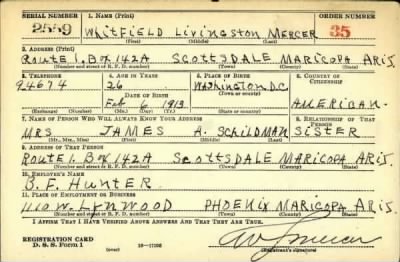 SERIAL NUMBER 1. NAME (Print) ORDER NUMBER
2559 WHITFIELD LIVINGSTON MERCER 35
(First) (Middle) (Last)
2. ADDRESS (Print)
ROUTE 1. BOX 142A SCOTTSDALE MARICOPA ARIS.
(Number and street or R. F. D. number) (Town) (County) (State)
3. TELEPHONE 4. AGE IN YEARS 5. PLACE OF BIRTH 6. COUNTRY OF CITIZENSHIP
94674 26 WASHINGTON D.C.
DATE OF BIRTH (Town or county)
FEB 6 1913 AMERICAN.
(Exchange) (Number) (Mo.) (Day) (Yr.) (State or country)
7. NAME OF PERSON WHO WILL ALWAYS KNOW YOUR ADDRESS 8. RELATIONSHIP OF THAT PERSON
MRS JAMES A. SCHILDMAN SISTER
(Mr., Mrs., Miss) (First) (Middle) (Last)
9. ADDRESS OF THAT PERSON
ROUTE 1. BOX 142A SCOTTSDALE MARICOPA ARIS.
(Number and street or R. F. D. number) (Town) (County) (State)
10. EMPLOYER'S NAME
B. F. HUNTER
11. PLACE OF EMPLOYMENT OR BUSINESS
1110 W. LYNWOOD PHOENIX MARICOPA ARIS.
(Number and street or R. F. D. number) (Town) (County) (State)
I AFFIRM THAT I HAVE VERIFIED ABOVE ANSWERS AND THAT THEY ARE TRUE.
REGISTRATION CARD
D. S. S. Form 1 (Registrant's signature)